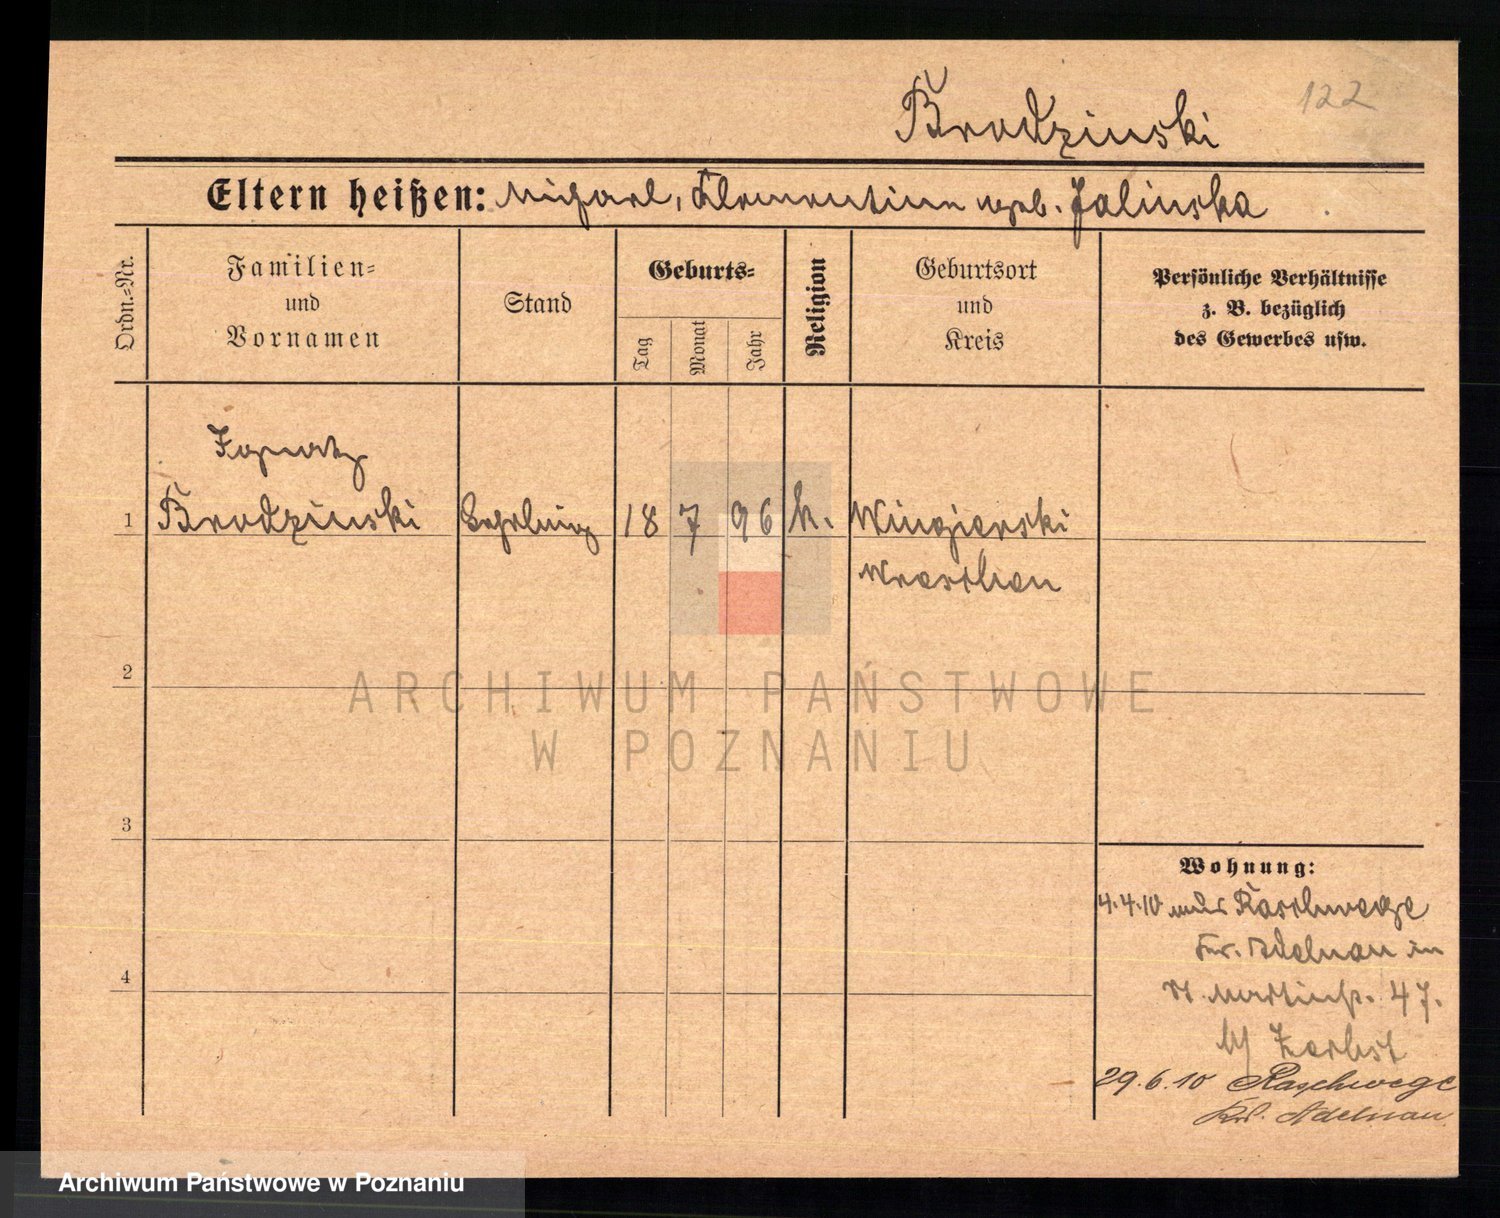 122
Brodzinski
Eltern heißen: Michael, Klementine geb. Jalinska
Ordn.=Nr.
Familien=
und
Vornamen
Stand
Geburts=
Tag
Monat
Jahr
Religion
Geburtsort
und
Kreis
Persönliche Verhältnisse
z. B. bezüglich
des Gewerbes usw.
Ignatz
1 Brodzinski Lehrling 18 7 96 k. Winezierski
Wreschen
2
ARCHIWUM PAŃSTWOWE
W POZNANIU
3
Wohnung:
4.4.10 aus Raschwege
Kr. Adelnau in
St. Martinstr. 47.
b/ Zerbst
4
29.6.10 Raschwege
Kr. Adelnau
Archiwum Państwowe w Poznaniu